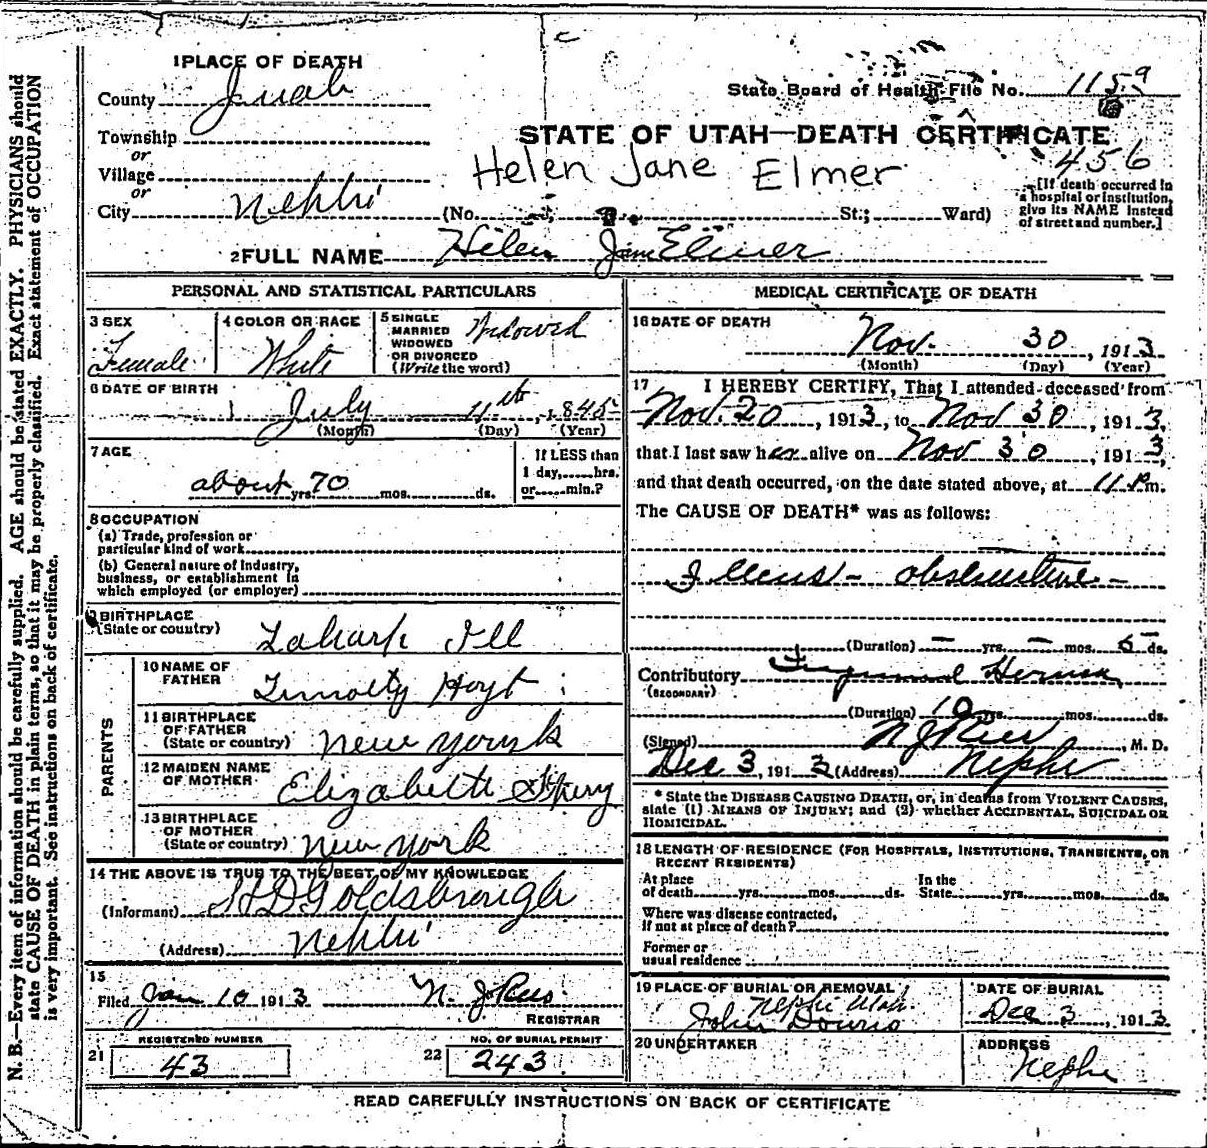 1 PLACE OF DEATH
County Juab
State Board of Health File No. 1159
Township
STATE OF UTAH—DEATH CERTIFICATE
or
Village
Helen Jane Elmer
456
or
City Nephi (No. St.; Ward)
[If death occurred in a hospital or institution, give its NAME instead of street and number.]
2 FULL NAME Helen Jane Elmer
PERSONAL AND STATISTICAL PARTICULARS
3 SEX
Female
4 COLOR OR RACE
White
5 SINGLE
MARRIED
WIDOWED
OR DIVORCED
(Write the word)
Widowed
6 DATE OF BIRTH
July 11th, 1845
(Month) (Day) (Year)
7 AGE
about 70 yrs. mos. ds.
If LESS than
1 day, hrs.
or min.?
8 OCCUPATION
(a) Trade, profession or
particular kind of work
(b) General nature of Industry,
business, or establishment in
which employed (or employer)
9 BIRTHPLACE
(State or country)
Laharp Ill
PARENTS
10 NAME OF
FATHER
Timothy Hoyt
11 BIRTHPLACE
OF FATHER
(State or country)
New York
12 MAIDEN NAME
OF MOTHER
Elizabeth
13 BIRTHPLACE
OF MOTHER
(State or country)
New York
14 THE ABOVE IS TRUE TO THE BEST OF MY KNOWLEDGE
(Informant) Goldsbrough
(Address) Nephi
15
Filed Jan 10 1913
REGISTRAR
REGISTERED NUMBER
21 43
NO. OF BURIAL PERMIT
22 243
MEDICAL CERTIFICATE OF DEATH
16 DATE OF DEATH
Nov. 30, 1913
(Month) (Day) (Year)
17 I HEREBY CERTIFY, That I attended deceased from
Nov. 20, 1913, to Nov 30, 1913,
that I last saw her alive on Nov 30, 1913,
and that death occurred, on the date stated above, at 11 P.m.
The CAUSE OF DEATH* was as follows:
Illeus - obstructive -
(Duration) — yrs. — mos. 5 ds.
Contributory
(SECONDARY)
(Duration) 10 yrs. mos. ds.
(Signed) , M. D.
Dec 3, 1913 (Address) Nephi
* State the DISEASE CAUSING DEATH, or, in deaths from VIOLENT CAUSES,
state (1) MEANS OF INJURY; and (2) whether ACCIDENTAL, SUICIDAL OR
HOMICIDAL.
18 LENGTH OF RESIDENCE (FOR HOSPITALS, INSTITUTIONS, TRANSIENTS, OR
RECENT RESIDENTS)
At place
of death yrs. mos. ds.
In the
State yrs. mos. ds.
Where was disease contracted,
if not at place of death?
Former or
usual residence
19 PLACE OF BURIAL OR REMOVAL
Nephi Utah
DATE OF BURIAL
Dec 3, 1913
John
20 UNDERTAKER
ADDRESS
Nephi
READ CAREFULLY INSTRUCTIONS ON BACK OF CERTIFICATE
N. B.—Every item of information should be carefully supplied. AGE should be stated EXACTLY. PHYSICIANS should
state CAUSE OF DEATH in plain terms, so that it may be properly classified. Exact statement of OCCUPATION
is very important. See instructions on back of certificate.